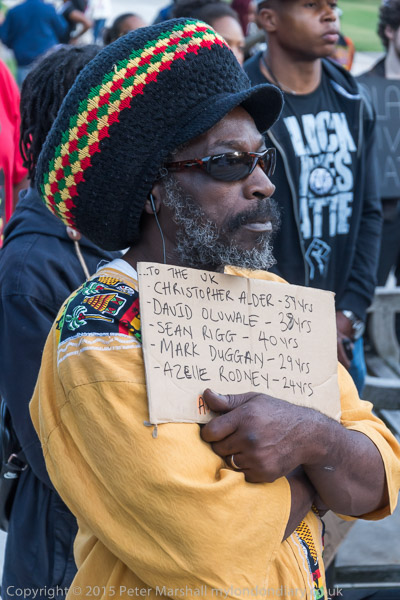 ..TO THE UK
CHRISTOPHER ALDER - 37yrs
- DAVID OLUWALE - 38yrs
- SEAN RIGG - 40 yrs
- MARK DUGGAN - 29yrs
- AZELLE RODNEY - 24yrs
A
LACK
IVES
ATTE
Copyright © 2015 Peter Marshall mylondondiary.co.uk